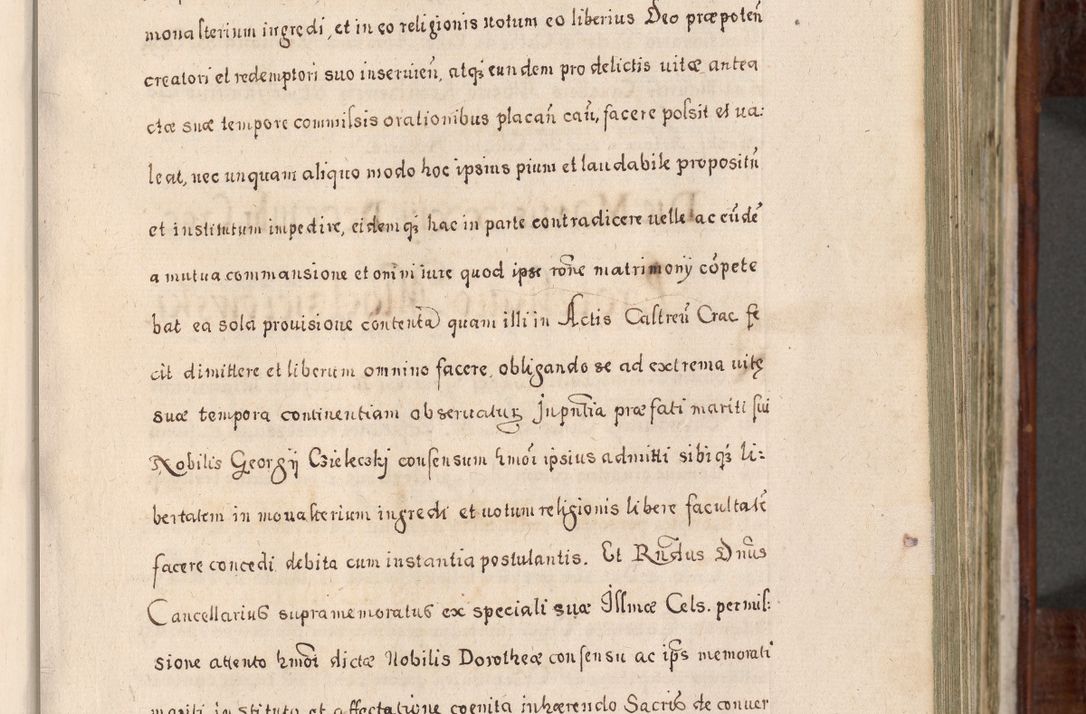 monasterium ingredi, et in eo religionis uotum eo liberius Deo præpoteñ
creatori et redemptori suo inseruień, atq₃ eundem pro delictis uitæ antea
ctæ suæ tempore commissis orationibus placań cau, facere possit et ua:
leat, nec unquam aliquo modo hoc ipsius pium et laudabile propositū
et institutum impedire, eidemq₃ hac in parte contradicere uelle ac eūdē
a mutua commansione et omni iure quod ipse rōne matrimonij cōpete
bat ea sola prouisione contenta) quam illi in Actis Castreń Crac. fe
cit dimittere et liberum omnino facere, obligando se ad extrema uitę
suæ tempora continentiam obseruatur. In pñtia præfati mariti sui
Nobilis Georgij Czieleczki consensum hmōi ipsius admitti sibiq₃ li:
bertatem in monasterium ingredi et uotum religionis libere facultatē
facere concedi debita cum instantia postulantis. Et Rñdus Dnūs
Cancellarius supramemoratus ex speciali suæ Illmæ Cels. permis:
sione attento hmōi dictæ Nobilis Dorotheæ consensu ac ips memorati
mariti instituto et affectatione cognita inhærendo Sacris de conuer